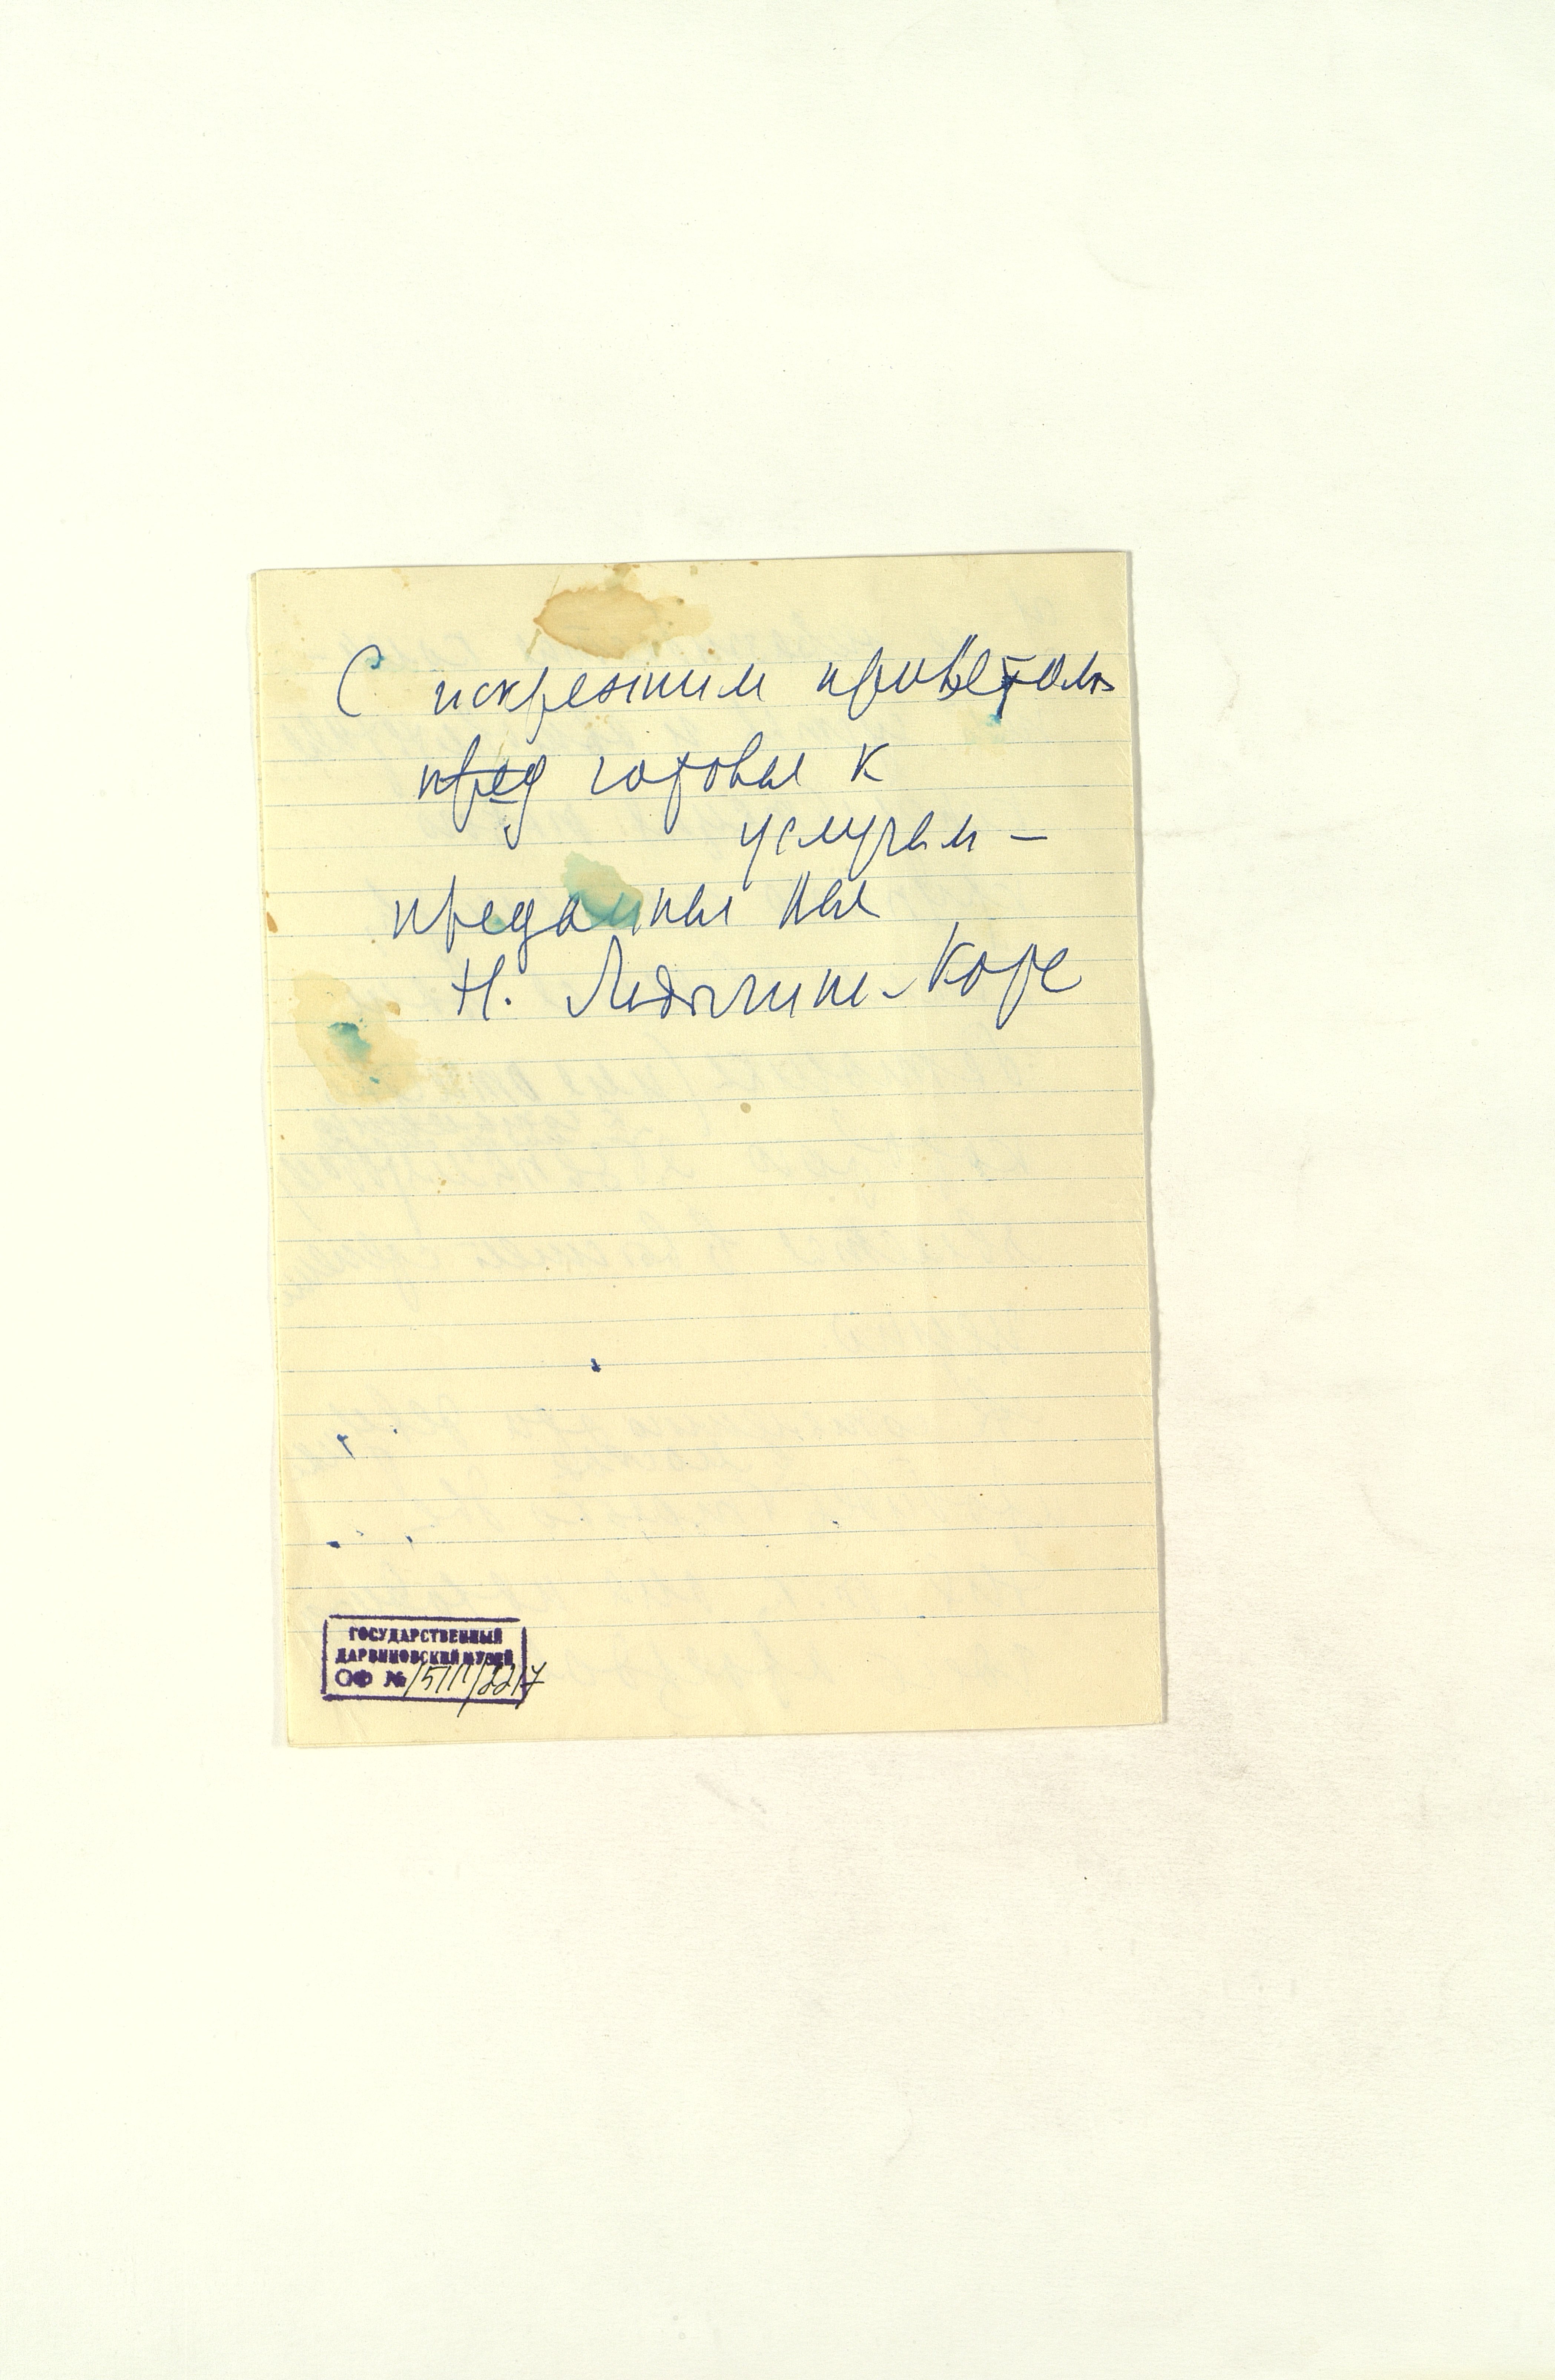 С искренним приветом
пред готовая к
услугам —
преданная Вам
Н. Ладыгина-Котс
ГОСУДАРСТВЕННЫЙ
ДАРВИНОВСКИЙ МУЗЕЙ
ОФ №